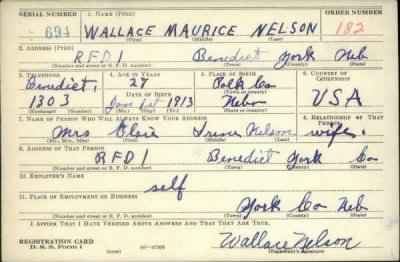 SERIAL NUMBER 1. NAME (Print) ORDER NUMBER
694 WALLACE MAURICE NELSON 182
(First) (Middle) (Last)
2. ADDRESS (Print)
RFD1 Benedict York Neb
(Number and street or R. F. D. number) (Town) (County) (State)
3. TELEPHONE 4. AGE IN YEARS 5. PLACE OF BIRTH 6. COUNTRY OF CITIZENSHIP
Benedict, 27 Polk Co
DATE OF BIRTH
1303 Jan 1st 1913 Nebr USA
(Exchange) (Number) (Mo.) (Day) (Yr.) (State or country)
7. NAME OF PERSON WHO WILL ALWAYS KNOW YOUR ADDRESS 8. RELATIONSHIP OF THAT PERSON
Mrs Elsie Irene Nelson wife.
(Mr., Mrs., Miss) (First) (Middle) (Last)
9. ADDRESS OF THAT PERSON
RFD1 Benedict York Co
(Number and street or R. F. D. number) (Town) (County) (State)
10. EMPLOYER'S NAME
self
11. PLACE OF EMPLOYMENT OR BUSINESS
York Co Neb
(Number and street or R. F. D. number) (Town) (County) (State)
I AFFIRM THAT I HAVE VERIFIED ABOVE ANSWERS AND THAT THEY ARE TRUE.
REGISTRATION CARD
D. S. S. Form 1 (over) Wallace Nelson
(Registrant's signature)